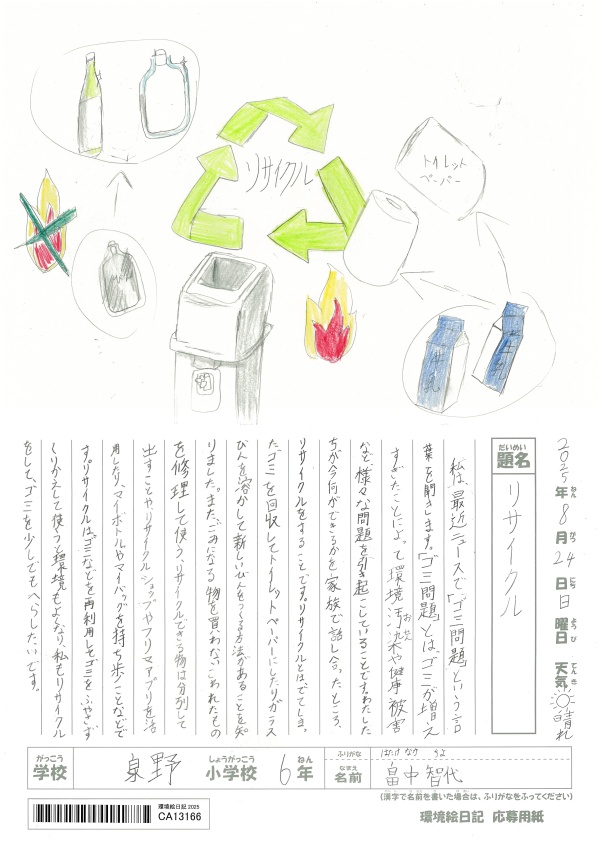 リサイクル
トイレット
ペーパー
牛乳
牛乳
2025年ねん8月がつ24日にち日曜日ようび 天気てんき晴れ
だいめい
題名
リサイクル
私は、最近ニュースで「ゴミ問題」という言
葉を聞きます。「ゴミ問題」とは、ゴミが増え
すぎたことによって環境汚染おせんや健康被害
など、様々な問題を引き起こしていることです。わたした
ちが今何ができるかを家族で話し合ったところ、
リサイクルをすることです。リサイクルとは、でてしまっ
たゴミを回収してトイレットペーパーにしたりガラス
びんを溶かして新しいびんをつくる方法があることを知
りました。また、ごみになる物を買わない、こわれたもの
を修理して使う、リサイクルできる物は分別して
出すことやリサイクルショップやフリマアプリを活
用したり、マイボトルやマイバッグを持ち歩くことなどで
す。リサイクルは、ゴミなどを再利用しもゴミをふやさず
くりかえして使うと環境もよくなり、私もリサイクル
をして、ゴミを少しでもへらしたいです。
がっこう
学校
泉野
しょうがっこう
小学校
6
ねん
年
ふりがな
はたけなか ちよ
なまえ
名前
畠中智代
(漢字で名前を書いた場合は、ふりがなをふってください)
環境絵日記 2025
CA13166
環境絵日記 応募用紙